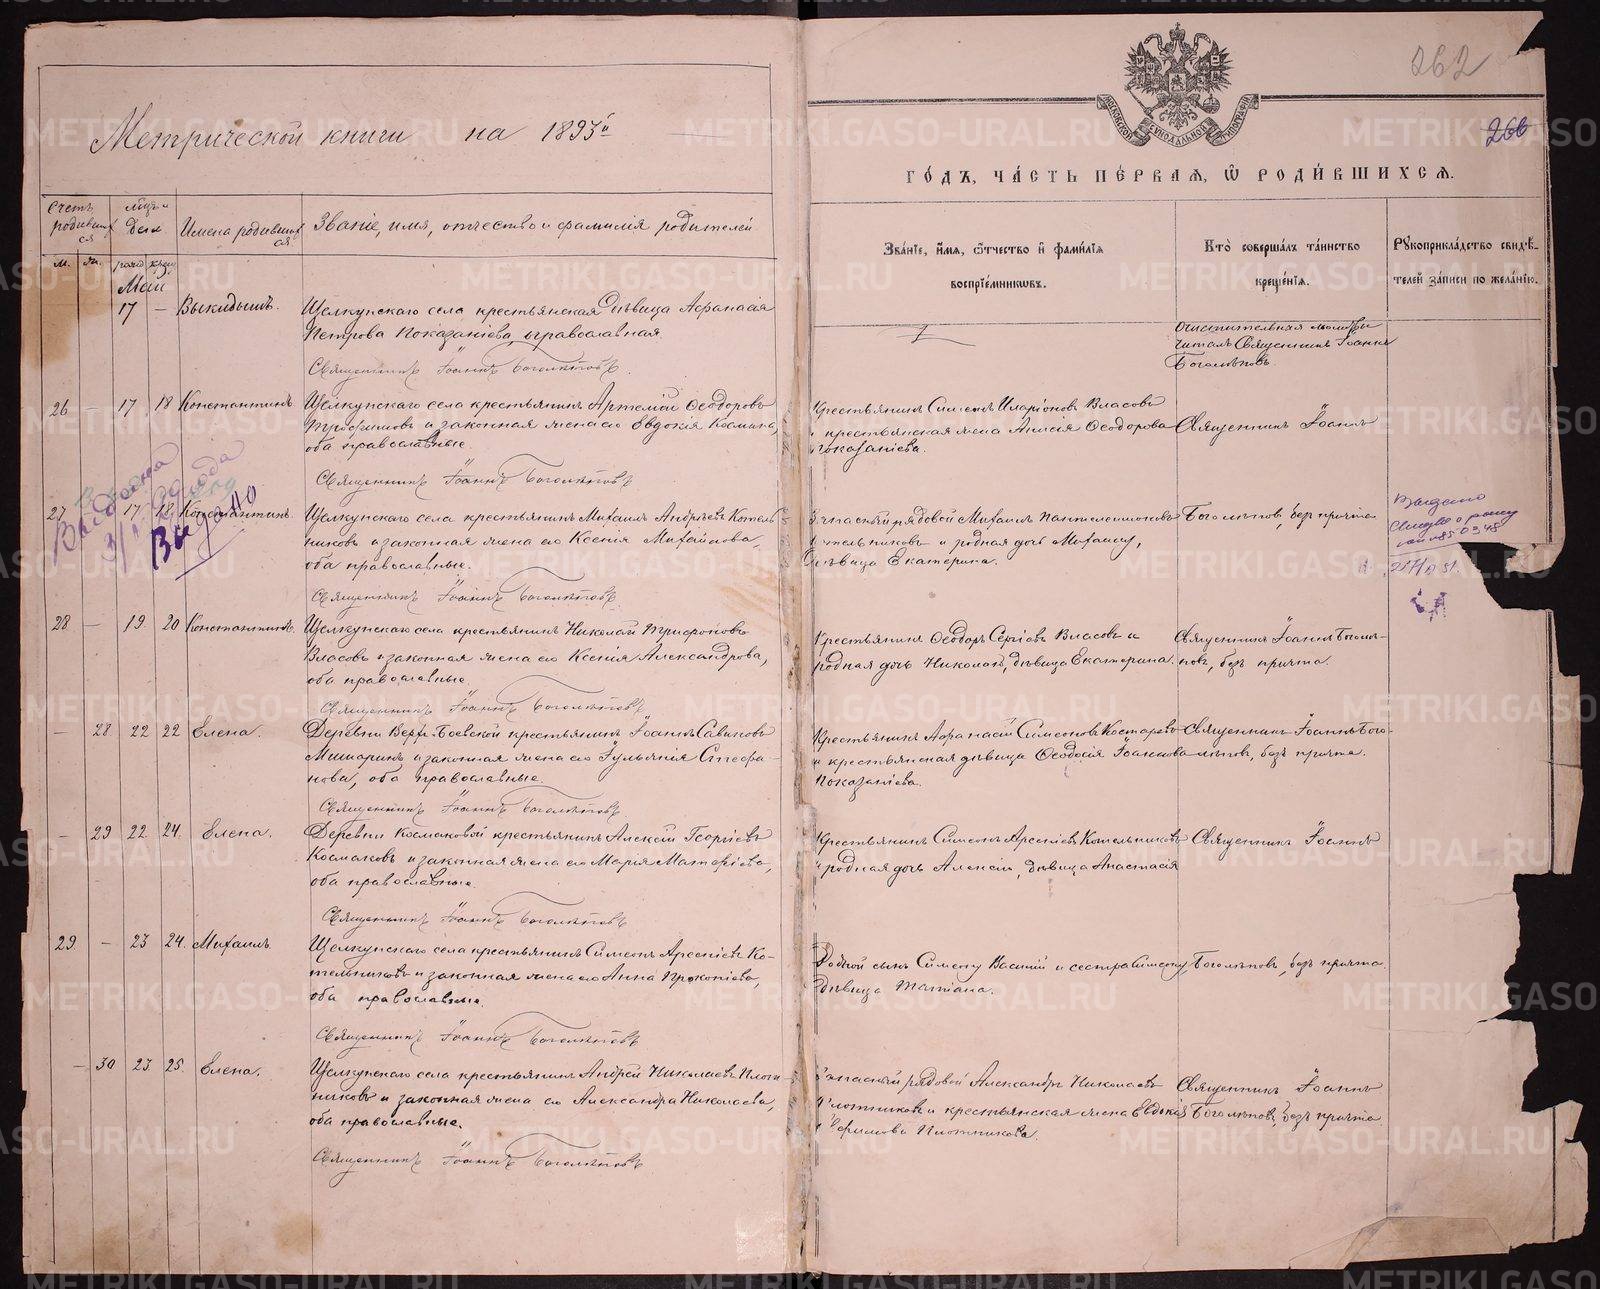 Метрической книги на 1893й
262
266
МОСКОВСКОЙ СѴНОДАЛЬНОЙ ТИПОГРАФІИ
ГО́ДЪ, ЧА́СТЬ ПЕ́РВАѦ, Ѡ҆ РОДИ́ВШИХСѦ.
Счетъ родившихся
Мѣсяц и день
Имена родившихся
Званіе, имя, отчество и фамилія родителей
Зва́нїе, и҆́мѧ, ѻ҆́тчество и҆ фами́лїѧ
воспрїе́мникѡвъ.
Кто̀ соверша́лъ та́инство
креще́нїѧ.
Рꙋкоприкла́дство свидѣ́-
телей за́писи по жела́нїю.
м. ж. рожд крещ
Май
17 — Выкидышъ.
Щелкунскаго села крестьянская дѣвица Афанасія
Петрова Показаніева, православная.
Священникъ Іоаннъ Боголѣповъ
Очистительная молитвы
читалъ Священникъ Іоаннъ
Боголѣповъ.
26 — 17 18 Константинъ
Щелкунскаго села крестьянинъ Артемій Ѳеодоровъ
Трофимовъ и законная жена его Евдокія Космина,
оба православные.
Священникъ Іоаннъ Боголѣповъ
Крестьянинъ Симеонъ Иларіоновъ Власовъ
и крестьянская жена Анисія Ѳеодорова
Показаніева.
Священникъ Іоаннъ
27 17 18 Константинъ
Выдано
Щелкунскаго села крестьянинъ Михаилъ Андреевъ Котель
никовъ и законная жена его Ксенія Михайлова,
оба православные.
Священникъ Іоаннъ Боголѣповъ
Запасный рядовой Михаилъ Пантелеимоновъ
Котельниковъ и родная дочь Михаилу,
дѣвица Екатерина.
Боголѣповъ, безъ причта
Выдано
28 — 19 20 Константинъ
Щелкунскаго села крестьянинъ Николай Трифоновъ
Власовъ и законная жена его Ксенія Александрова,
оба православные.
Священникъ Іоаннъ Боголѣповъ
Крестьянинъ Ѳеодоръ Сергіевъ Власовъ и
родная дочь Николая, дѣвица Екатерина.
Священникъ Іоаннъ Боголѣ-
повъ, безъ причта.
— 28 22 22 Елена.
Деревни Верх. Боевской крестьянинъ Іоаннъ Савиновъ
Мишаринъ и законная жена его Іульянія Стефа-
нова, оба православные.
Священникъ Іоаннъ Боголѣповъ
Крестьянинъ Афанасій Симеоновъ Костаревъ
и крестьянская дѣвица Ѳеодосія Іоаннова
Показаніева.
Священникъ Іоаннъ Бого-
лѣповъ, безъ причта.
— 29 22 24. Елена.
Деревни Космаковой крестьянинъ Алексѣй Георгіевъ
Космаковъ и законная жена его Марія Матфеіева,
оба православные.
Священникъ Іоаннъ Боголѣповъ
Крестьянинъ Симеонъ Арсеніевъ Котельниковъ
и родная дочь Алексія, дѣвица Анастасія
Священникъ Іоаннъ
29 — 23 24. Михаилъ.
Щелкунскаго села крестьянинъ Симеонъ Арсеніевъ Ко-
тельниковъ и законная жена его Анна Прокопіева,
оба православные.
Священникъ Іоаннъ Боголѣповъ
Родной сынъ Симеону Василій и сестра Симеону,
дѣвица Татіана.
Боголѣповъ, безъ причта
— 30 23 25. Елена.
Щелкунскаго села крестьянинъ Андрей Николаевъ Плот-
никовъ и законная жена его Александра Николаева,
оба православные.
Священникъ Іоаннъ Боголѣповъ
Запасный рядовой Александръ Николаевъ
Плотниковъ и крестьянская жена Евдокія
Ефимова Плотникова.
Священникъ Іоаннъ
Боголѣповъ, безъ причта
METRIKI.GASO-URAL.RU